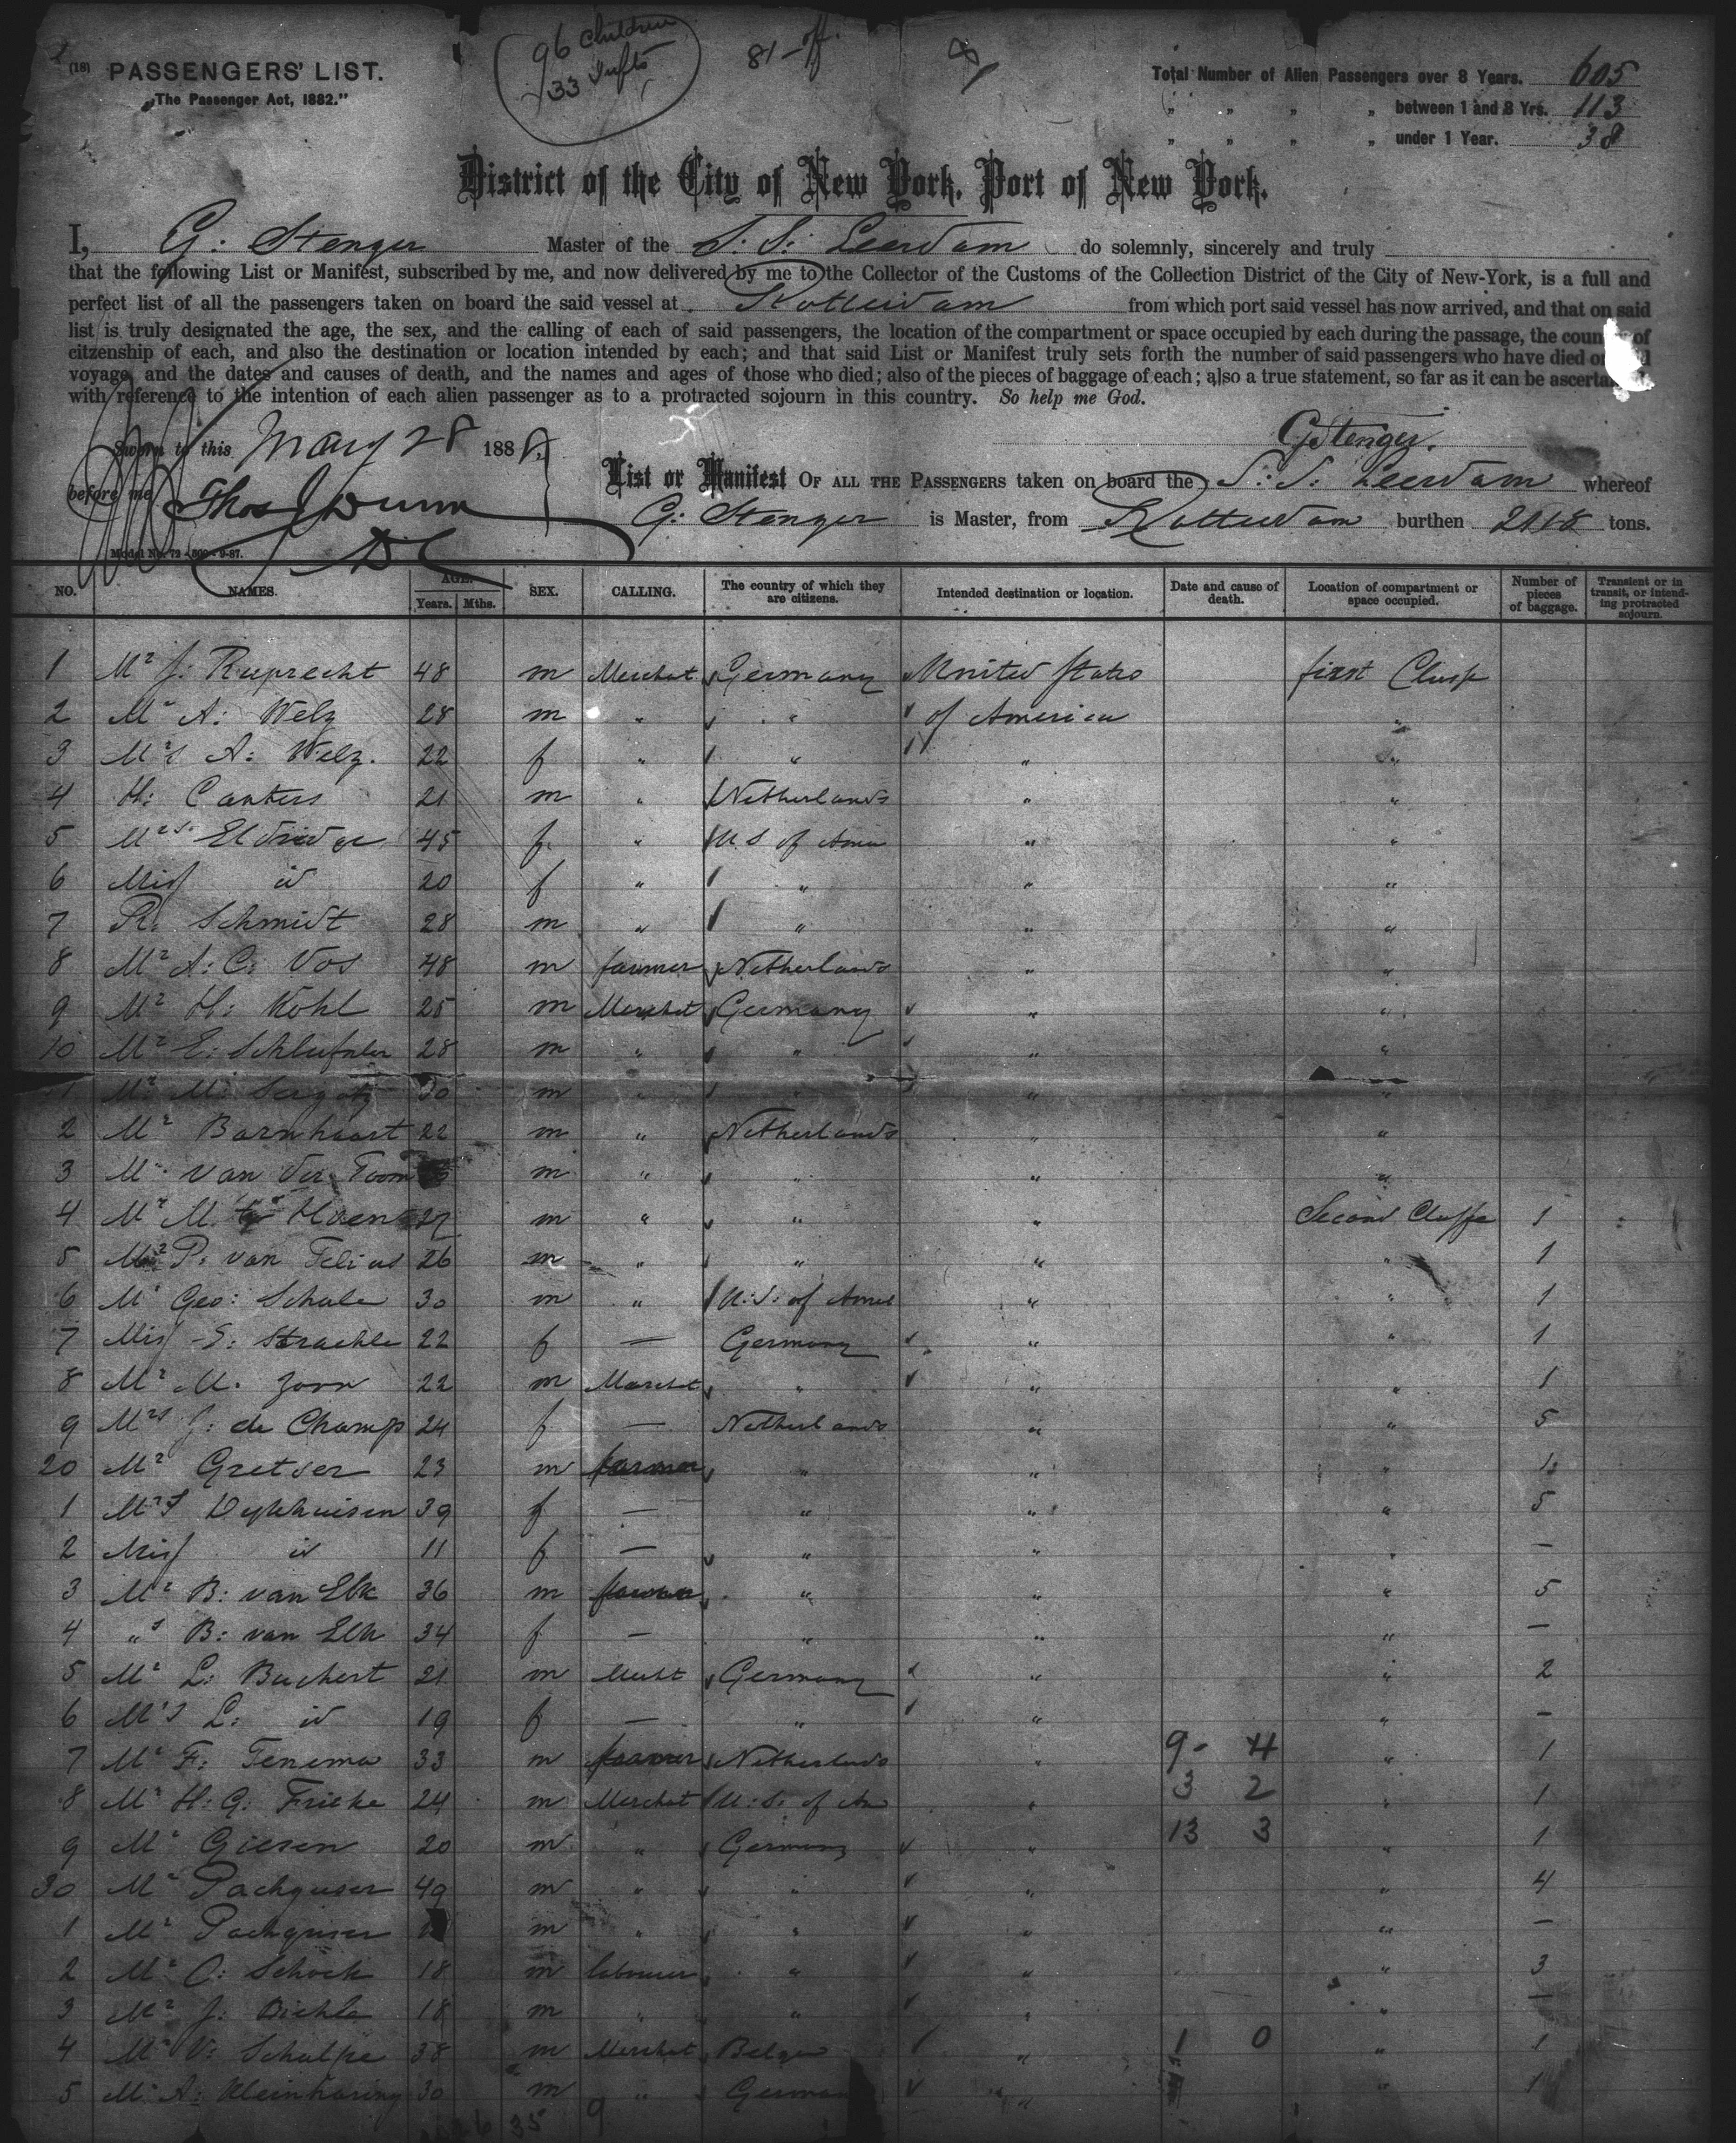 96 Children
33 Infts
81 - off.
(18) PASSENGERS' LIST.
„The Passenger Act, 1882."
Total Number of Alien Passengers over 8 Years. 605
„ „ „ „ between 1 and 8 Yrs. 113
„ „ „ „ under 1 Year. 38
District of the City of New York. Port of New York.
I, G: Stenger Master of the S. S. Leerdam do solemnly, sincerely and truly
that the following List or Manifest, subscribed by me, and now delivered by me to the Collector of the Customs of the Collection District of the City of New-York, is a full and
perfect list of all the passengers taken on board the said vessel at Rotterdam from which port said vessel has now arrived, and that on said
list is truly designated the age, the sex, and the calling of each of said passengers, the location of the compartment or space occupied by each during the passage, the of
citzenship of each, and also the destination or location intended by each; and that said List or Manifest truly sets forth the number of said passengers who have died
voyage, and the dates and causes of death, and the names and ages of those who died; also of the pieces of baggage of each; also a true statement, so far as it can be
with reference to the intention of each alien passenger as to a protracted sojourn in this country. So help me God.
GStenger.
Sworn to this May 28 1888.
before me Thos J Dunn
DC
List or Manifest OF ALL THE PASSENGERS taken on board the S: S. Leerdam whereof
G: Stenger is Master, from Rotterdam burthen 2118 tons.
Model No. 72 - 800 - 9-87.
NO. NAMES. AGE. Years. Mths. SEX. CALLING. The country of which they are citizens. Intended destination or location. Date and cause of death. Location of compartment or space occupied. Number of pieces of baggage. Transient or in transit, or intending protracted sojourn.
1 Mr J: Ruprecht 48 m Merchat Germany United States first Class
2 Mr A: Welz 28 m " " of America "
3 Mrs A: Welz. 22 f " " " "
4 H: Canters 21 m " Netherlands " "
5 Mrs. Eldridge 45 f. " U S of Ame " "
6 Miss id 20 f " " " "
7 R. Schmidt 28 m " " " "
8 Mr A: C: Vos 48 m farmer Netherlands " "
9 Mr H: Kohl 25 m Merchat Germany " "
10 Mr E: 28 m " " " "
1 Mr M: 30 m " " " "
2 Mr Barnhoort 22 m " Netherlands " "
3 Mr van der Toorn m " " " "
4 Mr M. Haens 27 m " " " Second Classe 1
5 Mr P. van Felius 26 m " " " " 1
6 Mr Geo: Schule 30 m " U. S. of Amer " " 1
7 Miss S: Straehle 22 f — Germany " " 1
8 Mr M. Zorn 22 m Merchat " " " 1
9 Mrs J: de Champs 24 f — Netherlands " " 5
20 Mr Gretser 23 m farmer " " " 1
1 Mrs Dykhuisen 39 f — " " " 5
2 Miss id 11 f — " " " —
3 Mr B: van Elk 36 m farmer " " " 5
4 "s B: van Elk 34 f — " " " —
5 Mr L: Buchert 21 m Mercht Germany " " 2
6 Mrs L: id 19 f — " " " —
7 Mr F: Tenema 33 m farmer Netherlands " 9 - 4 " 1
8 Mr H: G: Fricke 24 m Merchat U. S. of Am " 3 2 " 1
9 Mr Giesen 20 m " Germany " 13 3 " 1
30 Mr 49 m " " " " 4
1 Mr m " " " " —
2 Mr C: Schock 18 m labourer " " " 3
3 Mr J: Diehle 18 m " " " " —
4 Mr V: Schulpe 38 m Merchat Belgie " 1 0 " 1
5 Mr A: Kleinharing 30 m " German " " 1
35 9